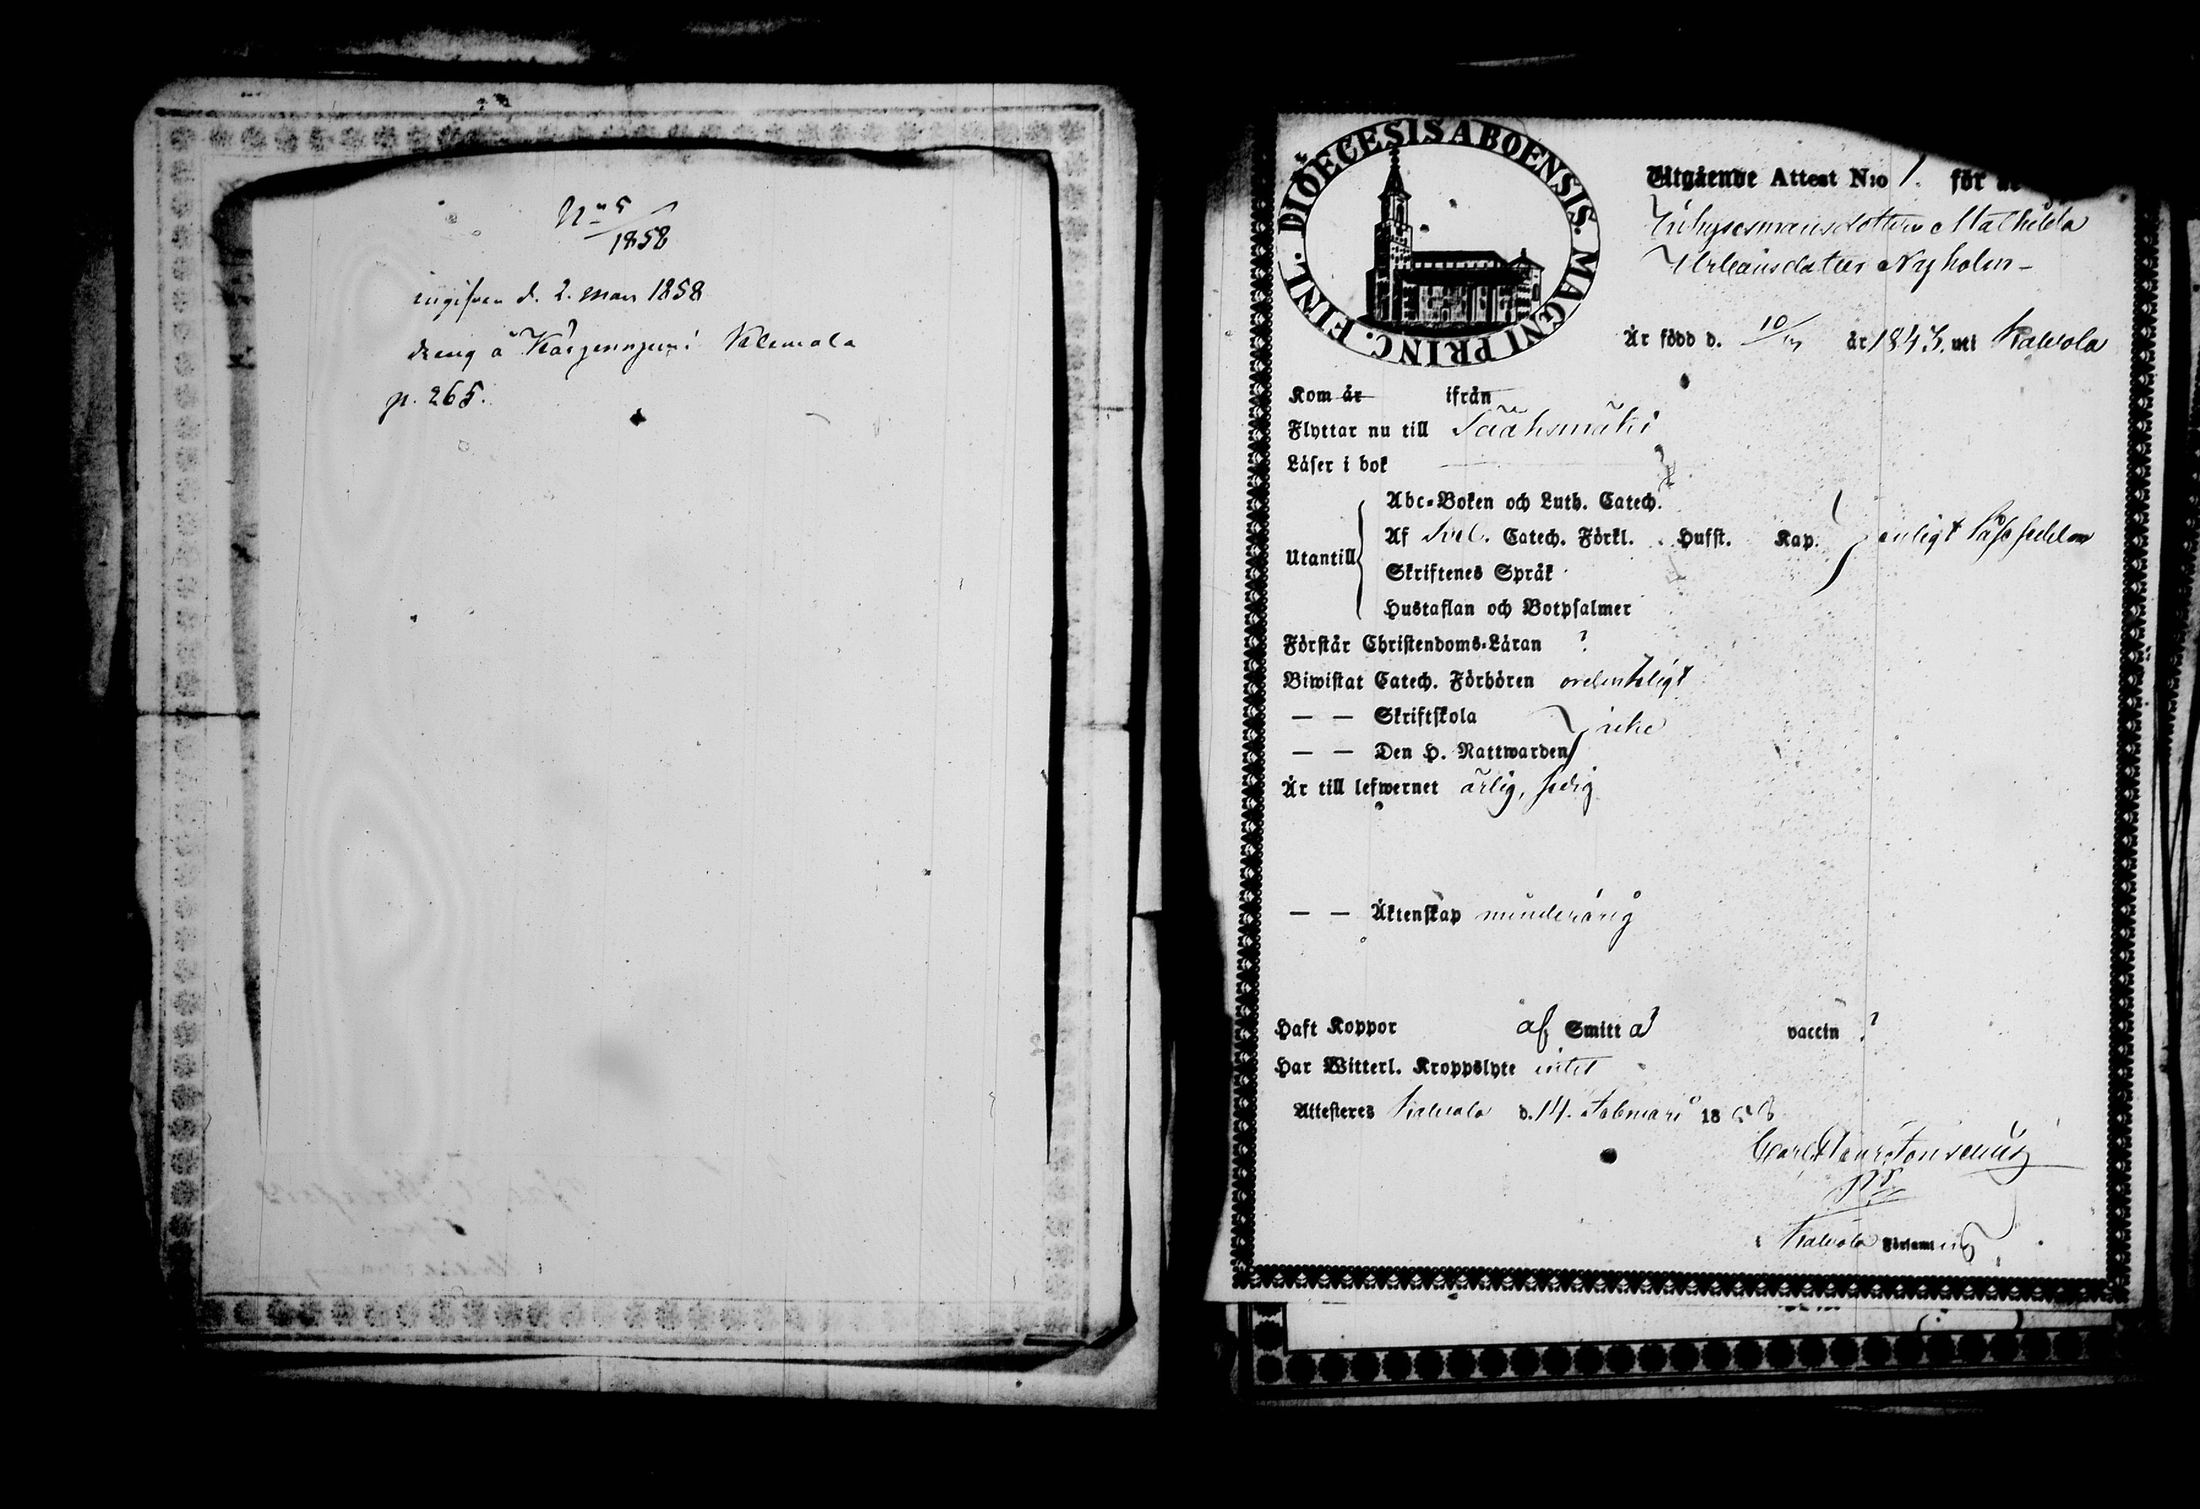 No 5/1858
ingifven d. 2. mars 1858
dreng å i
p. 265.
DIOECESIS ABOENSIS. MAGNI PRINC. FINL.
Utgående Attest N:o 1. för
Inhysesmansdottern Mathilda
Nyholm
Är född d. 10/ år 1843. uti Kalvola
Kom år ifrån
Flyttar nu till Sääksmäki
Läser i bok
Utantill
Abc-Boken och Luth. Catech.
Af Sveb. Catech. Förkl. Hufst. Kap. enligt Läsesedlen
Skriftenes Språk
Hustaflan och Botpsalmer
Förstår Christendoms-Läran ?
Biwistat Catech. Förhören ordentligt
— — Skriftskola icke
— — Den H. Nattwarden
Är till lefwernet ärlig, sedig
— — Äktenskap minderårig
Haft Koppor af Smitta? vaccin ?
Har Witterl. Kroppslyte intet
Attesteras Kalvola d. 14. Februari 1858
Carl
i Kalvola Församling